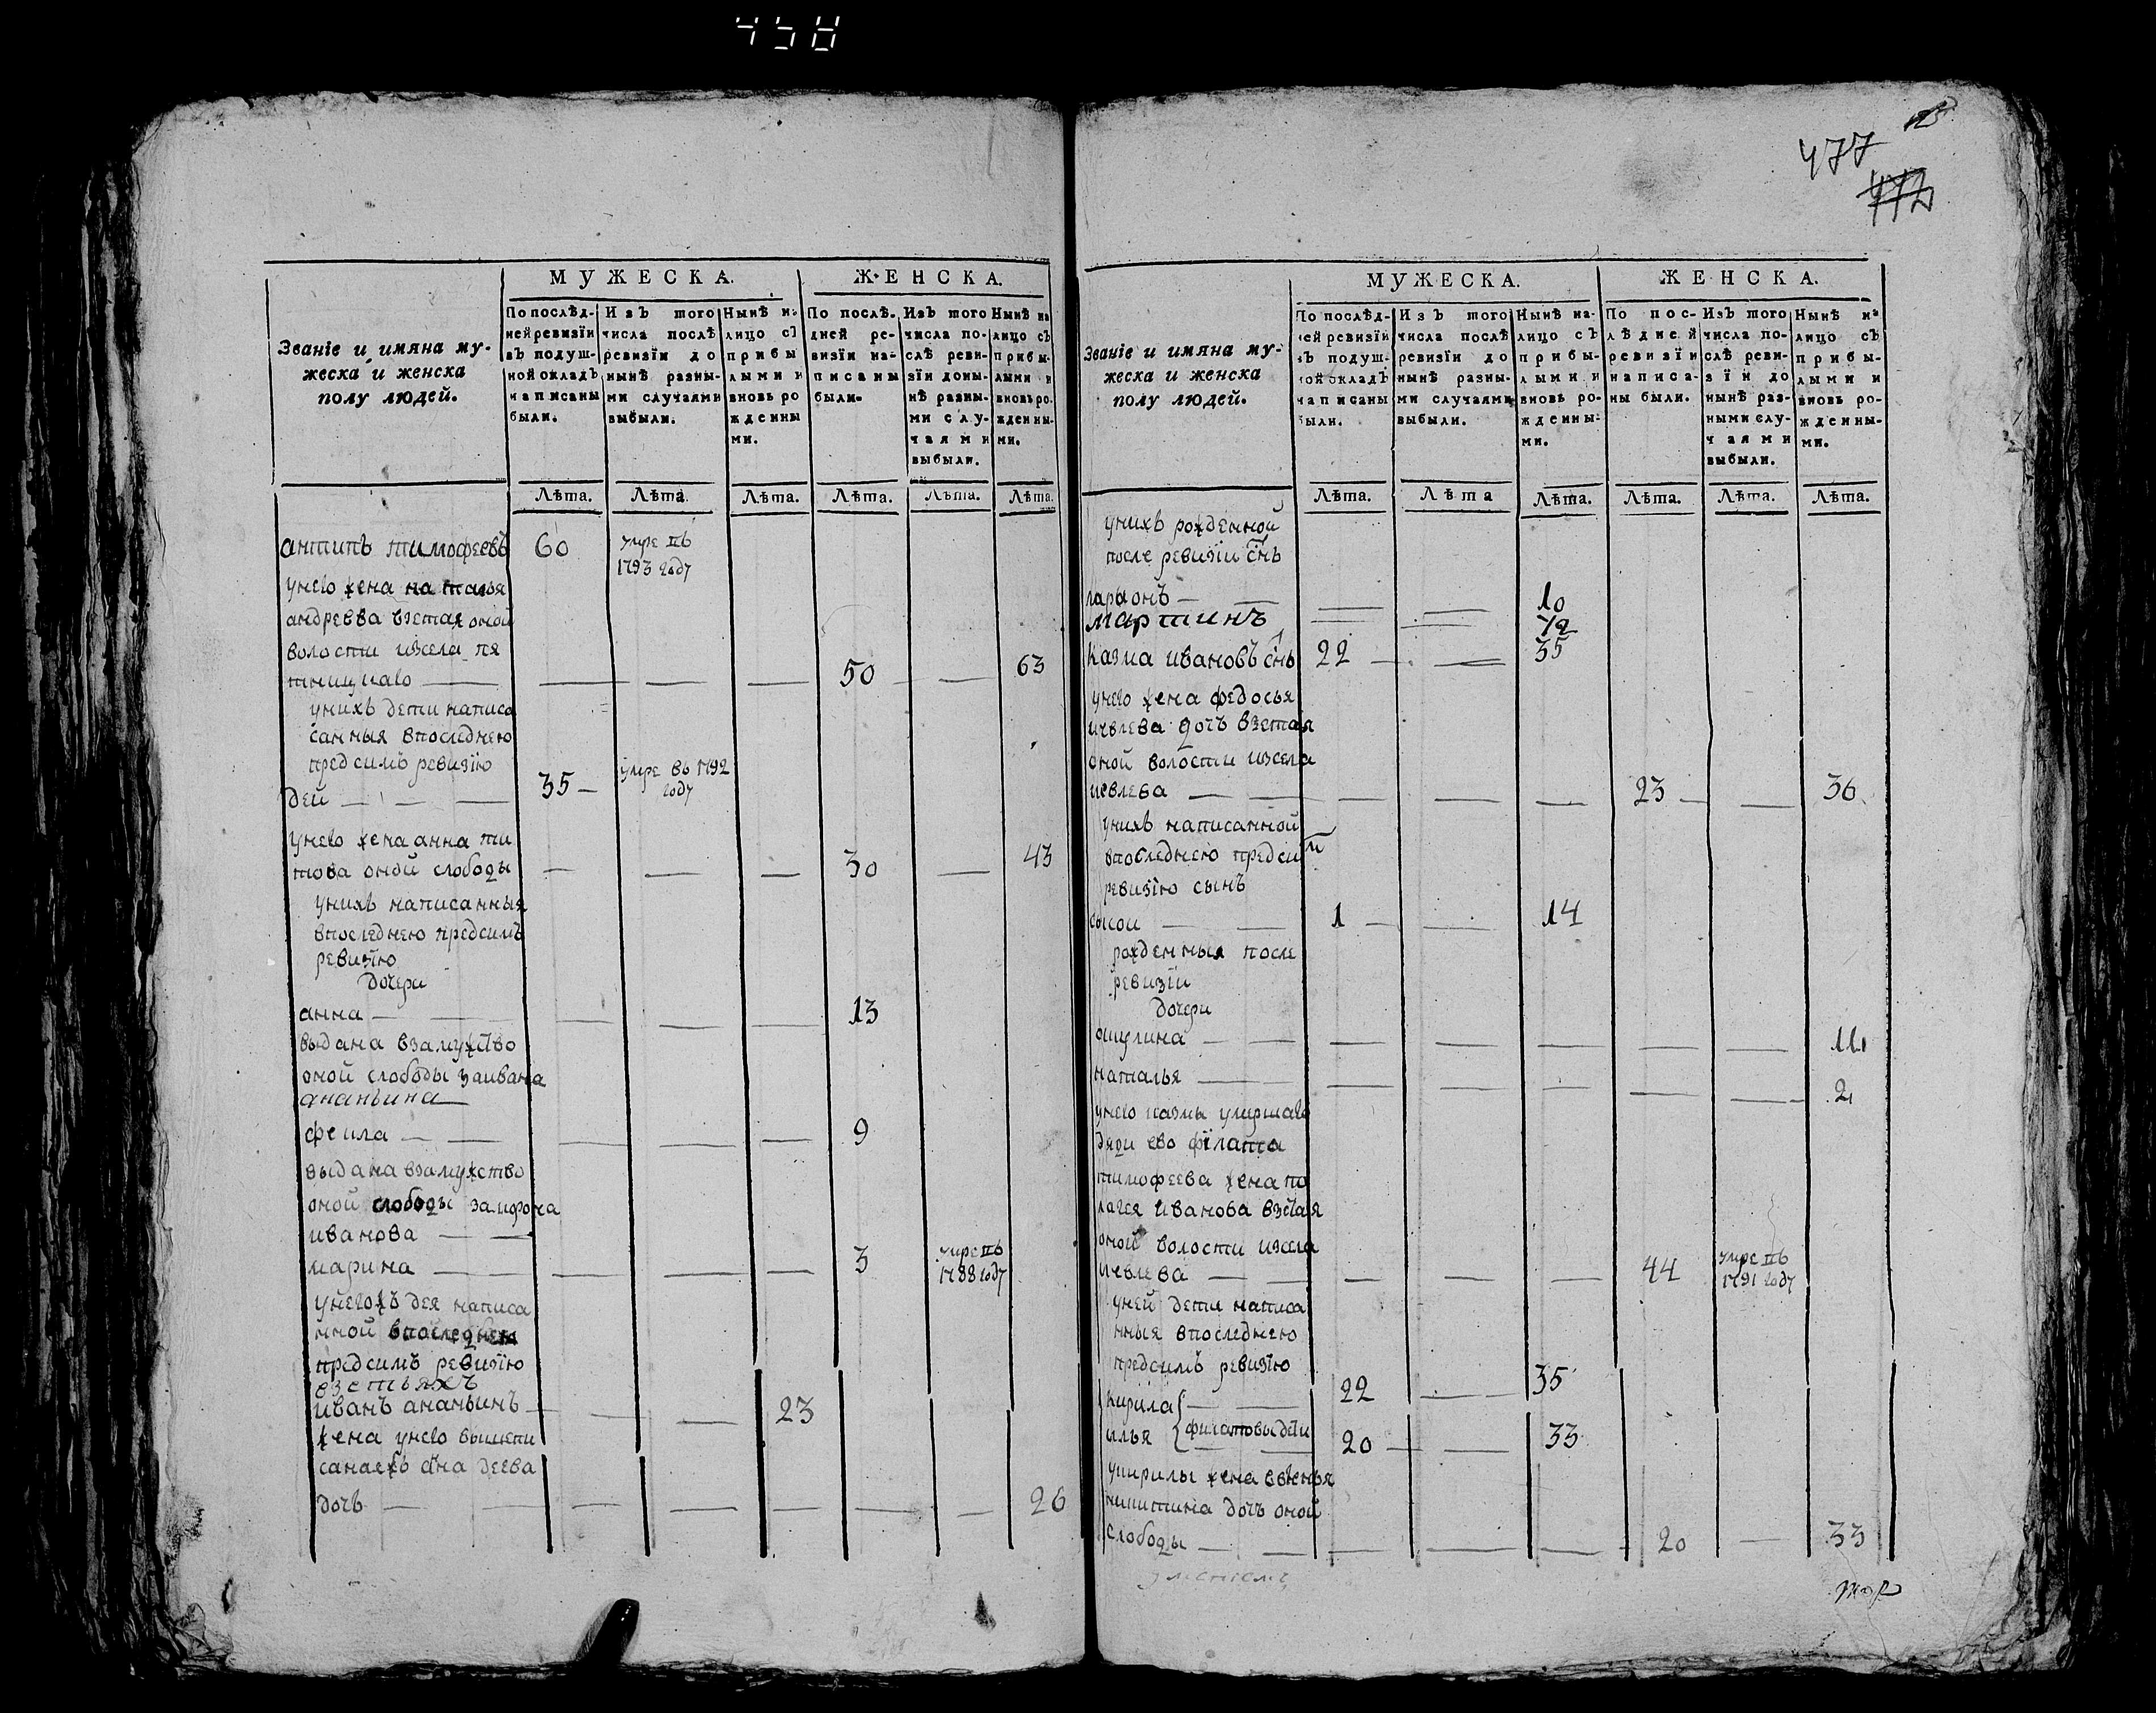 458
477
472
МУЖЕСКА.
ЖЕНСКА.
Званіе и имяна му-
жеска и женска
полу людей.
По послѣд-
ней ревизїи
въ подуш-
ной окладъ
написаны
были.
Изъ того
числа послѣ
ревизїи до
нынѣ разны-
ми случаями
выбыли.
Нынѣ на-
лицо съ
прибы
лыми и
вновь ро
жденны
ми.
По послѣ-
дней ре-
визїи на-
писаны
были.
Изъ того
числа по-
слѣ реви-
зїи доны-
нѣ разны-
ми слу-
чаями
выбыли.
Нынѣ на
лицо съ
прибы-
лыми и
вновь ро-
жденны-
ми.
Лѣта. Лѣта. Лѣта. Лѣта. Лѣта. Лѣта.
антипъ тимофеевъ 60 умре въ
1793 году
унего жена наталья
андреева взетая оной
волости изсела пя
тницкаго 50 63
унихъ дети написа
санныя впоследнею
предсимъ ревизїю
дей 35 умре въ 1792
году
унего жена анна ти
това оной слободы 30 43
унихъ написанныя
впоследнею предсимъ
ревизїю
дочери
анна 13
выдана взамужство
оной слободы заивана
ананьина
фекла 9
выдана взамужство
оной слободы
иванова
марина 3 умре въ
1788 году
унегожъ дея написа
нной впоследнею
предсимъ ревизїю
взетьяхъ
иванъ ананьинъ 23
жена унего вышепи
санаежъ ана деева
дочь 26
МУЖЕСКА.
ЖЕНСКА.
Званіе и имяна му-
жеска и женска
полу людей.
По послѣд-
ней ревизїи
въ подуш-
ной окладъ
написаны
были.
Изъ того
числа послѣ
ревизїи до
нынѣ разны-
ми случаями
выбыли.
Нынѣ на-
лицо съ
прибы-
лыми и
вновь ро-
жденны-
ми.
По пос-
лѣдней
ревизїи
написа-
ны были.
Изъ того
числа по-
слѣ реви-
зїи до
нынѣ раз-
ными слу-
чаями
выбыли.
Нынѣ на
лицо съ
прибы-
лыми и
вновь ро-
жденны-
ми.
Лѣта. Лѣта Лѣта. Лѣта. Лѣта. Лѣта.
унихъ рожденной
после ревизїи снъ
ларионъ 10
мартинъ 1/2
казма ивановъ снъ 22 35
унего жена федосья
иевлева дочъ взетая
оной волости изсела
иевлева 23 36
унихъ написанной
впоследнею предсим
ревизїю сынъ
1 14
рожденныя после
ревизїи
дочери
акулина 11
наталья 2
унего казмы умершаго
дяди ево филата
тимофеева жена по
лагея иванова взетая
оной волости изсела
иевлева 44 умре въ
1791 году
уней дети написа
нныя впоследнею
предсимъ ревизїю
кирила 22 35
илья филатовы дети 20 33
укирилы жена евгенья
никитина дочъ оной
слободы 20 33